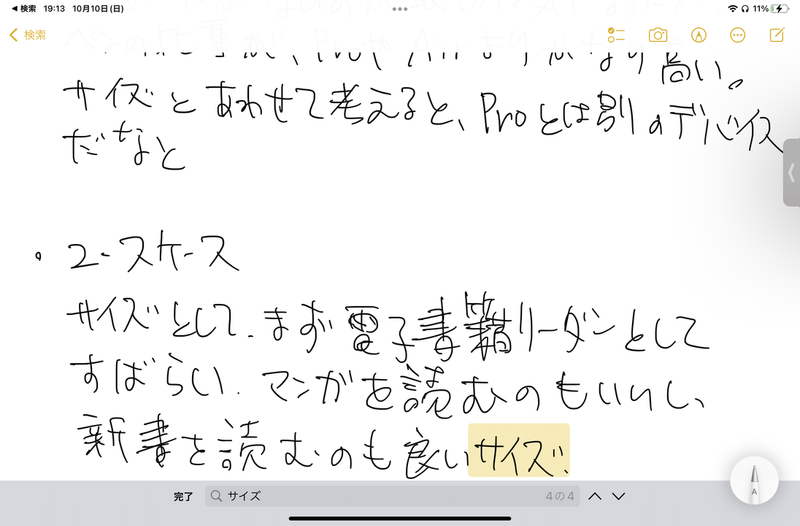 検索 19:13 10月10日(日) 11%
検索
高い。
サイズとあわせて考えると、Proとは別のデバイス
だなと
・ユースケース
サイズとして、まず電子書籍リーダンとして
すばらい、マンガを読むのもいいし、
新書を読むのも良いサイズ、
完了 サイズ 4の4
A